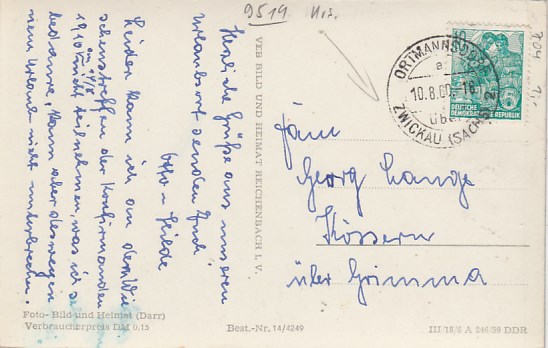 9519
Herzliche Grüße aus unserem
Urlaubsort senden Euch
Otto u. Hilde
Leider kann ich am
der Konfirmanden
1910 nicht teilnehmen, was ich sehr
bedaure, kann aber deswegen
mein Urlaub nicht unterbrechen.
VEB BILD UND HEIMAT REICHENBACH I. V.
ORTMANNSDORF
a
10.8.60.-18
über
ZWICKAU (SACHS) 2
10
DEUTSCHE
DEMOKRATISCHE REPUBLIK
5
Fam
Georg Lange
Kössern
über Grimma
Foto- Bild und Heimat (Darr)
Verbraucherpreis DM 0,15
Best.-Nr. 14/4249
III/18/6 A 246/59 DDR